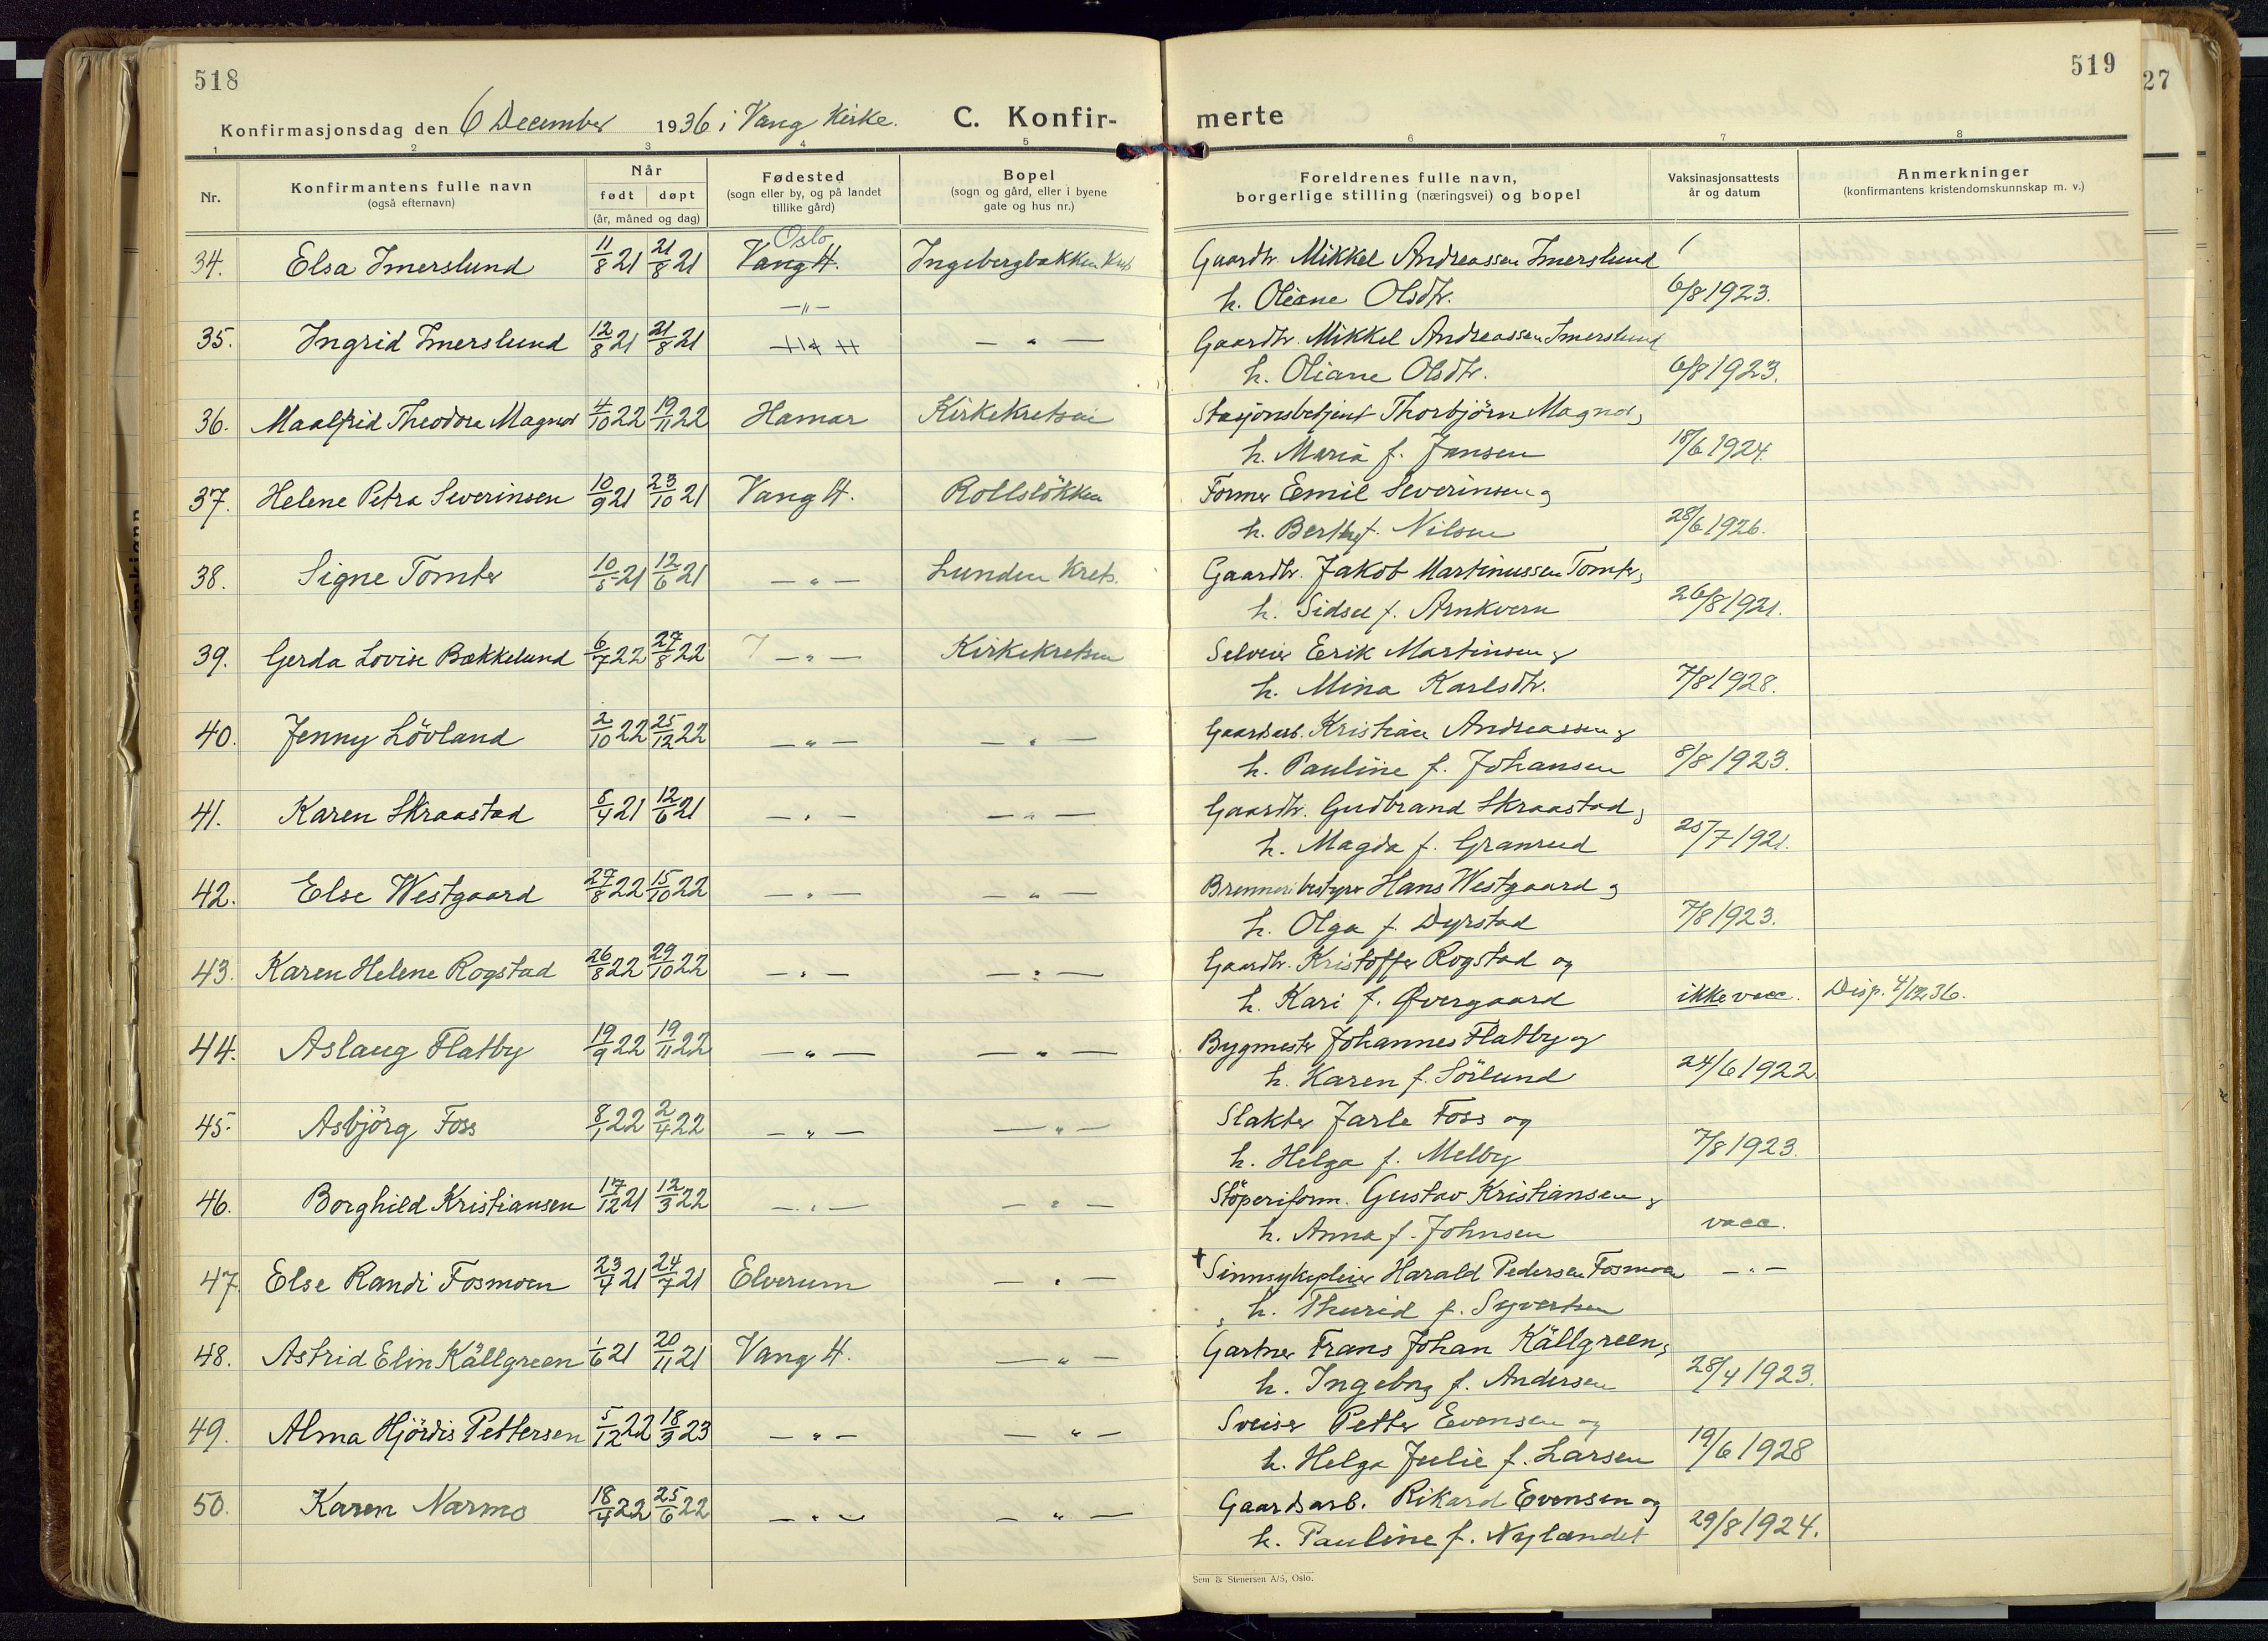 518
Konfirmasjonsdag den 6 December 1936 i Vang Kirke. C. Konfir-
1 2 3 4 5
Nr. Konfirmantens fulle navn (også efternavn) Når født døpt (år, måned og dag) Fødested (sogn eller by, og på landet tillike gård) Bopel (sogn og gård, eller i byene gate og hus nr.)
34. Elsa Imerslund 11/8 21 21/8 21 Oslo Vang H. Ingebergbakken Krets
35. Ingrid Imerslund 12/8 21 21/8 21 -"- - " -
36. Maalfrid Theodora Magnor 4/10 22 19/11 22 Hamar Kirkekretsen
37. Helene Petra Severinsen 10/9 21 23/10 21 Vang H. Rollsløkken
38. Signe Tomter 10/5 21 12/6 21 - " - Lunden Krets.
39. Gerda Lovise Bækkelund 6/7 22 27/8 22 - " - Kirkekretsen
40. Jenny Lövland 2/10 22 25/12 22 - " - - " -
41. Karen Skraastad 5/4 21 12/6 21 - " - - " -
42. Else Westgaard 27/8 22 15/10 22 - " - - " -
43. Karen Helene Rogstad 26/8 22 29/10 22 - " - - " -
44. Aslaug Flatby 19/9 22 19/11 22 - " - - " -
45. Asbjörg Foss 8/1 22 2/4 22 - " - - " -
46. Borghild Kristiansen 17/12 21 12/3 22 - " - - " -
47. Else Randi Fosmoen 23/4 21 24/7 21 Elverum - " -
48. Astrid Elin Källgreen 1/6 21 20/11 21 Vang H. - " -
49. Alma Hjördis Pettersen 5/12 22 18/3 23 - " - - " -
50. Karen Narmo 18/4 22 25/6 22 - " - - " -
519
27
merte
6 7 8
Foreldrenes fulle navn, borgerlige stilling (næringsvei) og bopel Vaksinasjonsattests år og datum Anmerkninger (konfirmantens kristendomskunnskap m. v.)
Gaardbr. Mikkel Andreassen Imerslund
h. Oliane Olsdtr. 6/8 1923.
Gaardbr. Mikkel Andreassen Imerslund
h. Oliane Olsdtr. 6/8 1923.
Stasjonsbetjent Thorbjörn Magnor,
h. Maria f. Jansen 18/6 1924.
Former Emil Severinsen og
h. Berthe f. Nilsen 28/6 1926.
Gaardbr. Jakob Martinussen Tomter,
h. Sidsel f. Arnkvern 26/8 1921.
Erik Martinsen og
h. Mina Karlsdtr. 7/8 1928.
Gaardsarb. Kristian Andreassen og
h. Pauline f. Johansen 8/8 1923.
Gaardbr. Gudbrand Skraastad,
h. Magda f. Granrud 25/7 1921.
Brenneribestyrer Hans Westgaard og
h. Olga f. Dyrstad 7/8 1923.
Gaardbr. Kristoffer Rogstad og
h. Kari f. Øvergaard ikke vacc. Disp. 4/12 36.
Bygmester Johannes Flatby og
h. Karen f. Sörlund 24/6 1922
Slakter Jarle Foss og
h. Helga f. Melby 7/8 1923.
Stöperiform. Gustav Kristiansen og
h. Anna f. Johnsen vacc.
† Sinnsykepleier Harald Pedersen Fosmoen - " -
h. Thurid f. Syvertsen
Gartner Frans Johan Källgreen,
h. Ingeborg f. Andersen 28/4 1923.
Sveiser Petter Evensen og
h. Helga Julie f. Larsen 19/6 1928
Gaardsarb. Rikard Evensen og
h. Pauline f. Nylandet 29/8 1924.
Sem & Stenersen A/S, Oslo.